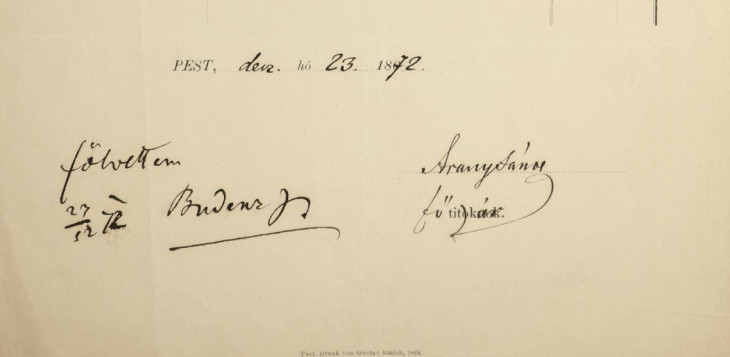 PEST, dec. hó 23. 1872.
fölvettem
27/12 72
Budenz J
Arany János
fő titoknok.
Pest. Druck von Gustav Emich, 1864.